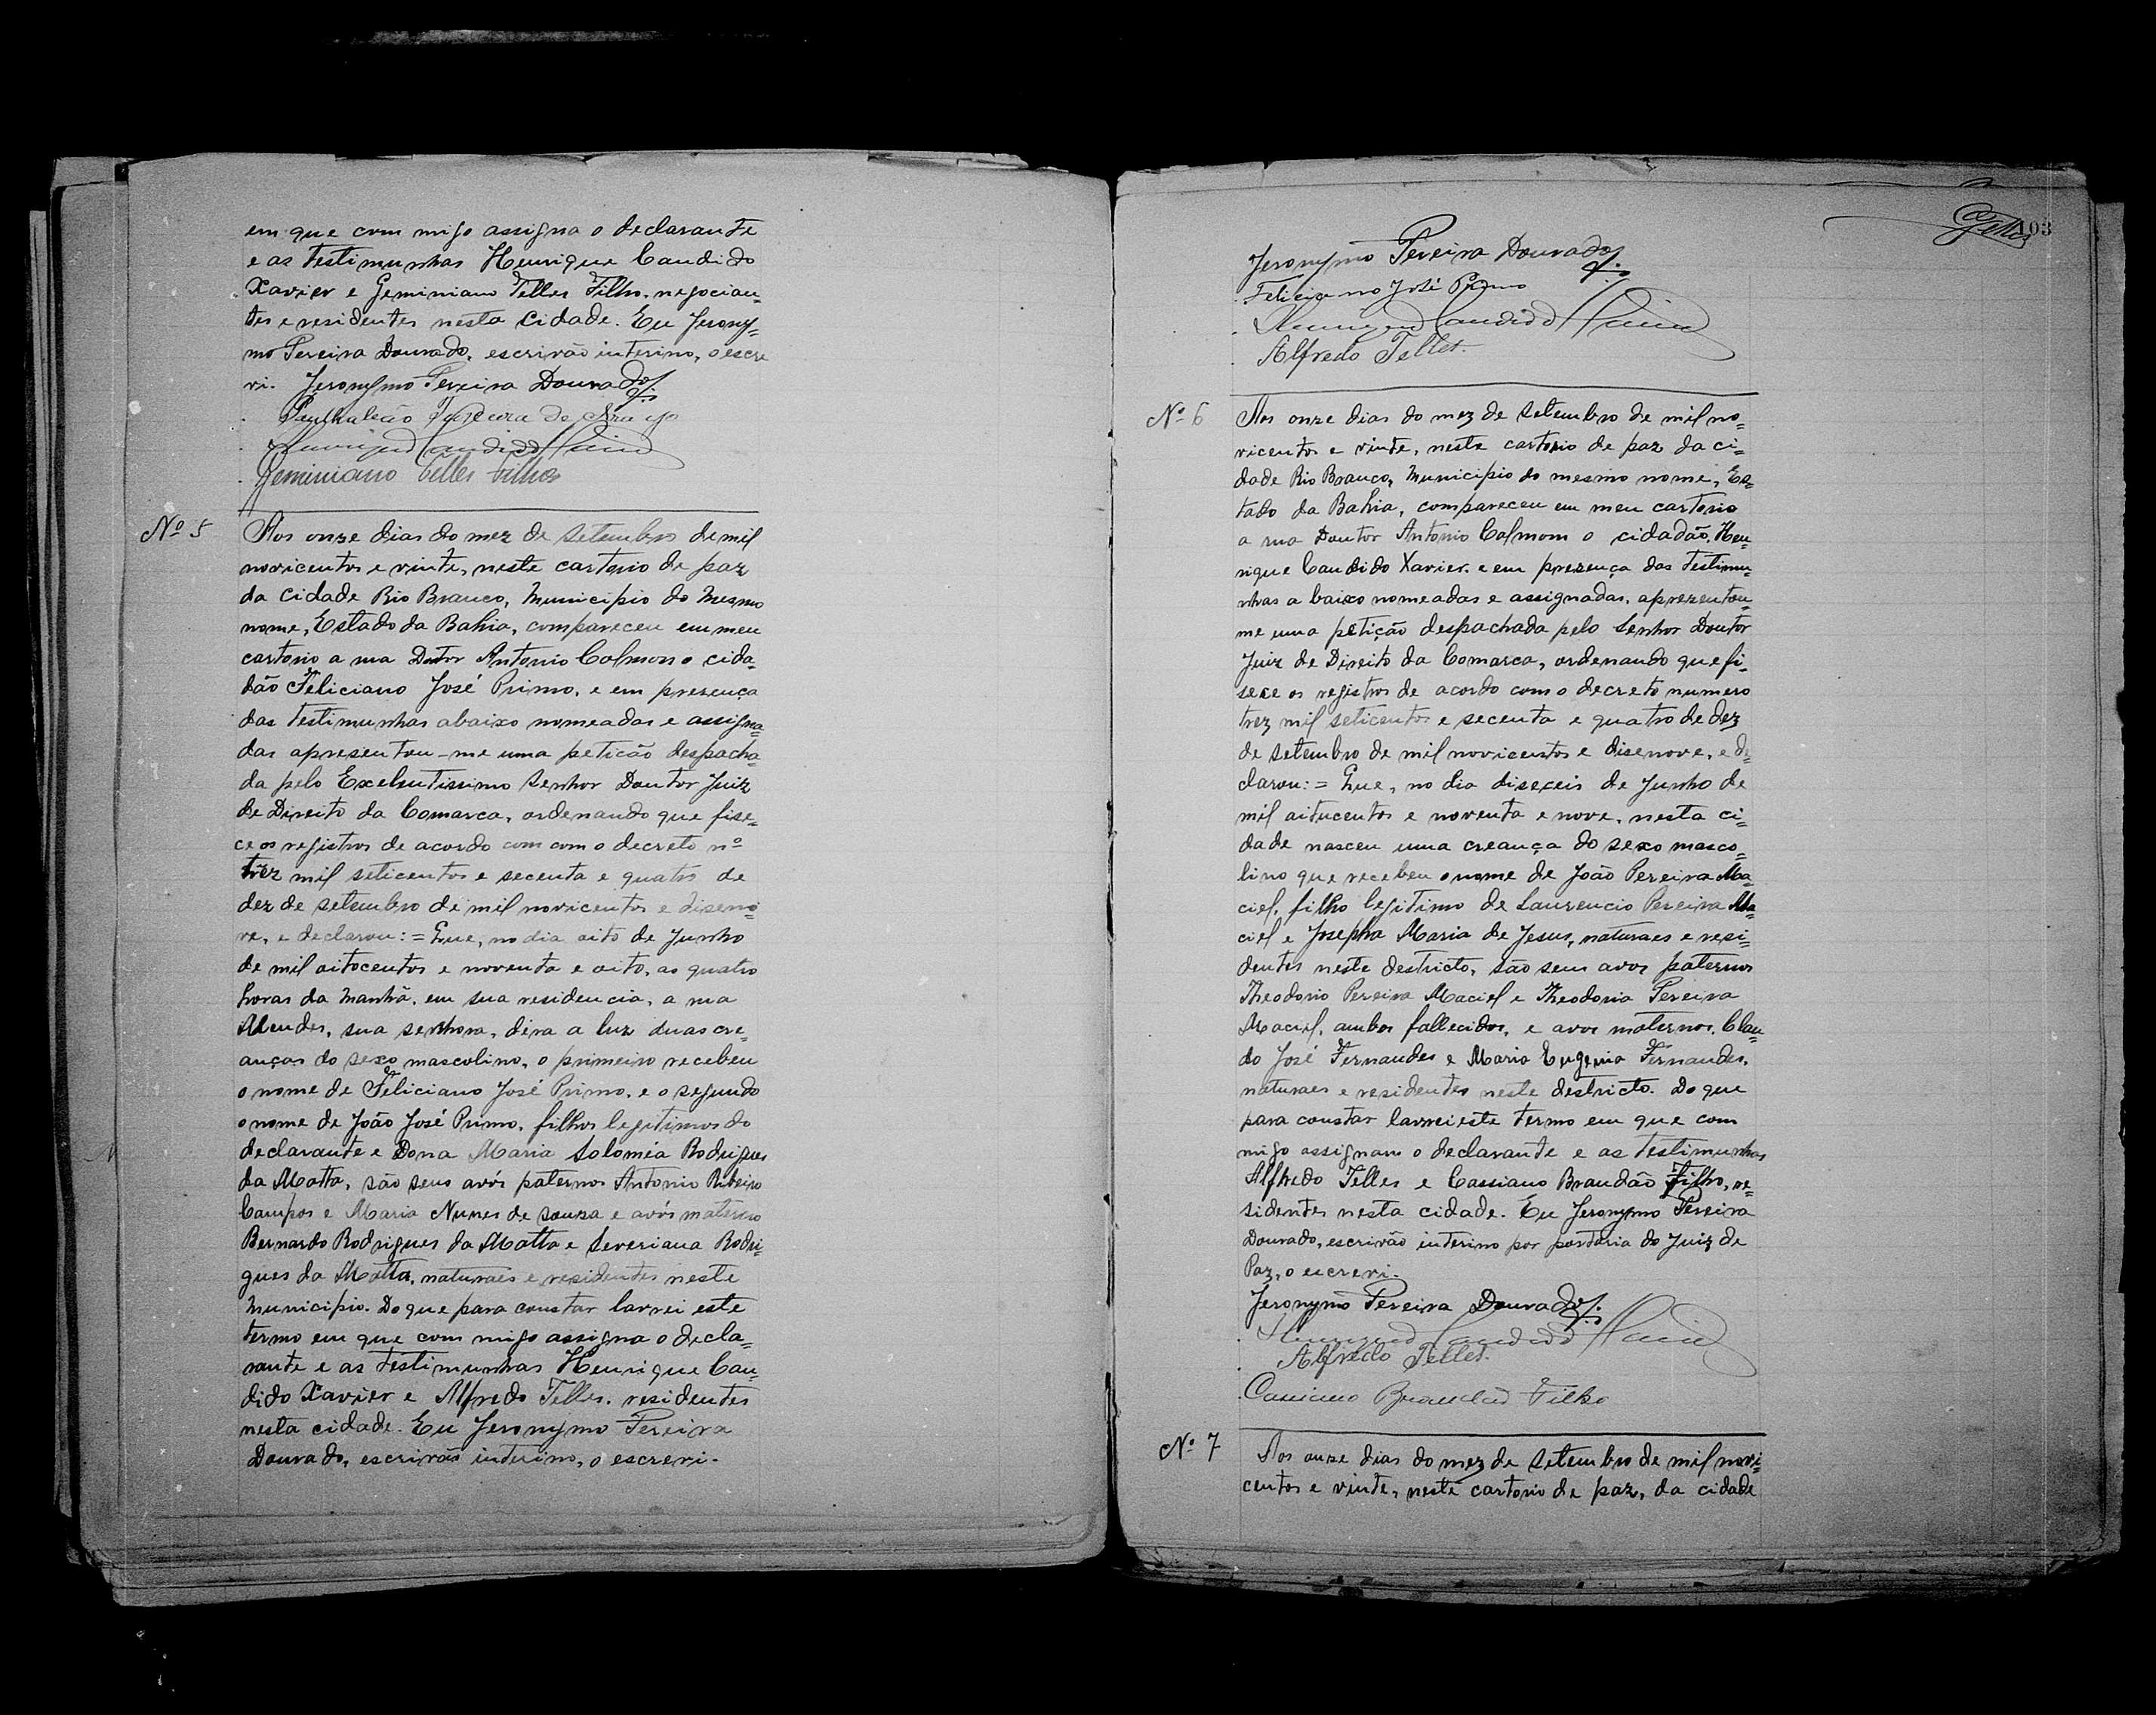 em que com migo assigna o declarante
e as testimunhas Henrique Candido
Xavier e Geminiano Telles Filho, negocian-
tes e residentes nesta Cidade. Eu Jerony-
mo Pereira Dourado, escrivão interino, o escre
vi. Jeronymo Pereira Dourado
de Araujo
Henrique Candido Xavier
Geminiano Telles Filho
Nº 5
Aos onze dias do mez de Setembro de mil
novicentos e vinte, neste cartorio de paz
da cidade Rio Branco, Municipio do Mesmo
nome, Estado da Bahia, compareceu em meu
cartorio a rua Dotor Antonio Calmon o cida-
dão Feliciano José Primo, e em presença
das testimunhas abaixo nomeadas e assigna-
das apresentou-me uma petição despacha-
da pelo Excelentissimo Senhor Doutor Juiz
de Direito da Comarca, ordenando que fise-
ce os registros de acordo com com o decreto nº
trez mil seticentos e secenta e quatro de
dez de Setembro de mil novicentos e diseno-
ve, e declarou:= Que, no dia oito de Junho
de mil oitocentos e noventa e oito, as quatro
horas da Manhã, em sua residencia, a rua
Mendes, sua senhora, dera a luz duas cre-
anças do sexo mascolino, o primeiro recebeu
o nome de Feliciano José Primo, e o segundo
o nome de João José Primo, filhos legitimos do
declarante e Dona Maria Saloméa Rodrigues
da Matta, são seus avós paternos Antonio Ribeiro
Campos e Maria Nunes de Souza e avós materno
Bernardo Rodrigues da Matta e Severiana Rodri-
gues da Matta, naturaes e residentes neste
Municipio. Do que para constar lavrei este
termo em que com migo assigna o decla-
rante e as testimunhas Henrique Can-
dido Xavier e Alfredo Telles, residentes
nesta cidade. Eu Jeronymo Pereira
Dourado, escrivão interino, o escrevi.
103
Jeronymo Pereira Dourado
Feliciano José Primo
Henrique Candido Xavier
Alfredo Telles.
Nº 6
Aos onze dias do mez de Setembro de mil no-
vicentos e vinte, neste cartorio de paz da ci-
dade Rio Branco, Municipio do mesmo nome, Es-
tado da Bahia, compareceu em meu cartorio
a rua Doutor Antonio Calmom o cidadão, Hen-
rique Candido Xavier, e em presença das testimu-
nhas a baixo nomeadas e assignadas, aprezentou-
me uma petição despachada pelo Senhor Doutor
Juiz de Direito da Comarca, ordenando que fi-
sece os registros de acordo com o decreto numero
trez mil seticentos e secenta e quatro de dez
de setembro de mil novicentos e disenove, e de-
clarou:= Que, no dia diseceis de Junho de
mil aitucentos e noventa e nove, nesta ci-
dade nasceu uma creança do sexo masco-
lino que recebeu o nome de João Pereira Ma-
ciel, filho legitimo de Laurencio Pereira Ma-
ciel e Josepha Maria de Jesus, naturaes e resi-
dentes neste destricto, são seus avos paternos
Theodorio Pereira Maciel e Theodoria Pereira
Maciel, ambos fallecidos, e avos maternos, Clau-
do José Fernandes e Maria Eugenia Fernandes,
naturaes e residentes neste destricto. Do que
para constar lavrei este termo em que com
migo assignam o declarante e as testimunhas
Alfredo Telles e Cassiano Brandão Filho, re-
sidentes nesta cidade. Eu Jeronymo Pereira
Dourado, escrivão interino por portaria do Juiz de
Paz, o escrevi.
Jeronymo Pereira Dourado
Henrique Candido Xavier
Alfredo Telles.
Cassiano Brandão Filho
Nº 7
Aos onze dias do mez de Setembro de mil novi-
centos e vinte, neste cartorio de paz, da cidade